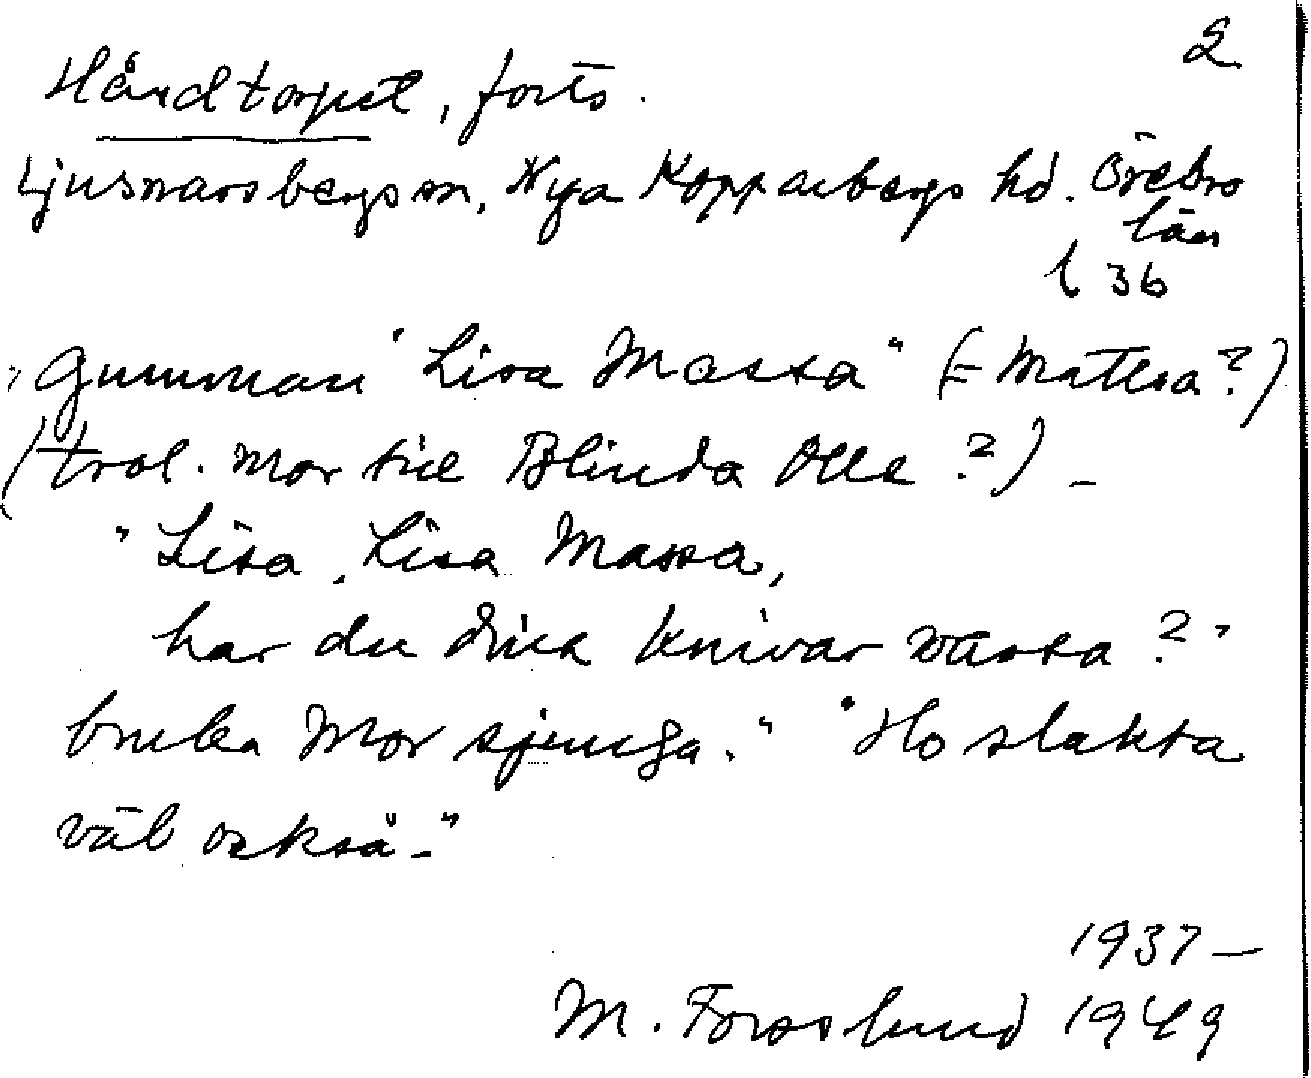 2
Hårdtorpet, forts.
Ljusnarsbergs sn, Nya Kopparbergs hd. Örebro
län
l 36
"Gumman "Lisa Massa" (= Matsa?)
(trol. mor till Blinda Olle?) –
"Lisa, Lisa Massa,
har du dina knivar vassa?"
bruka Mor sjunga." "Ho slakta
väl också–"
1937–
M. Forsslund 1949